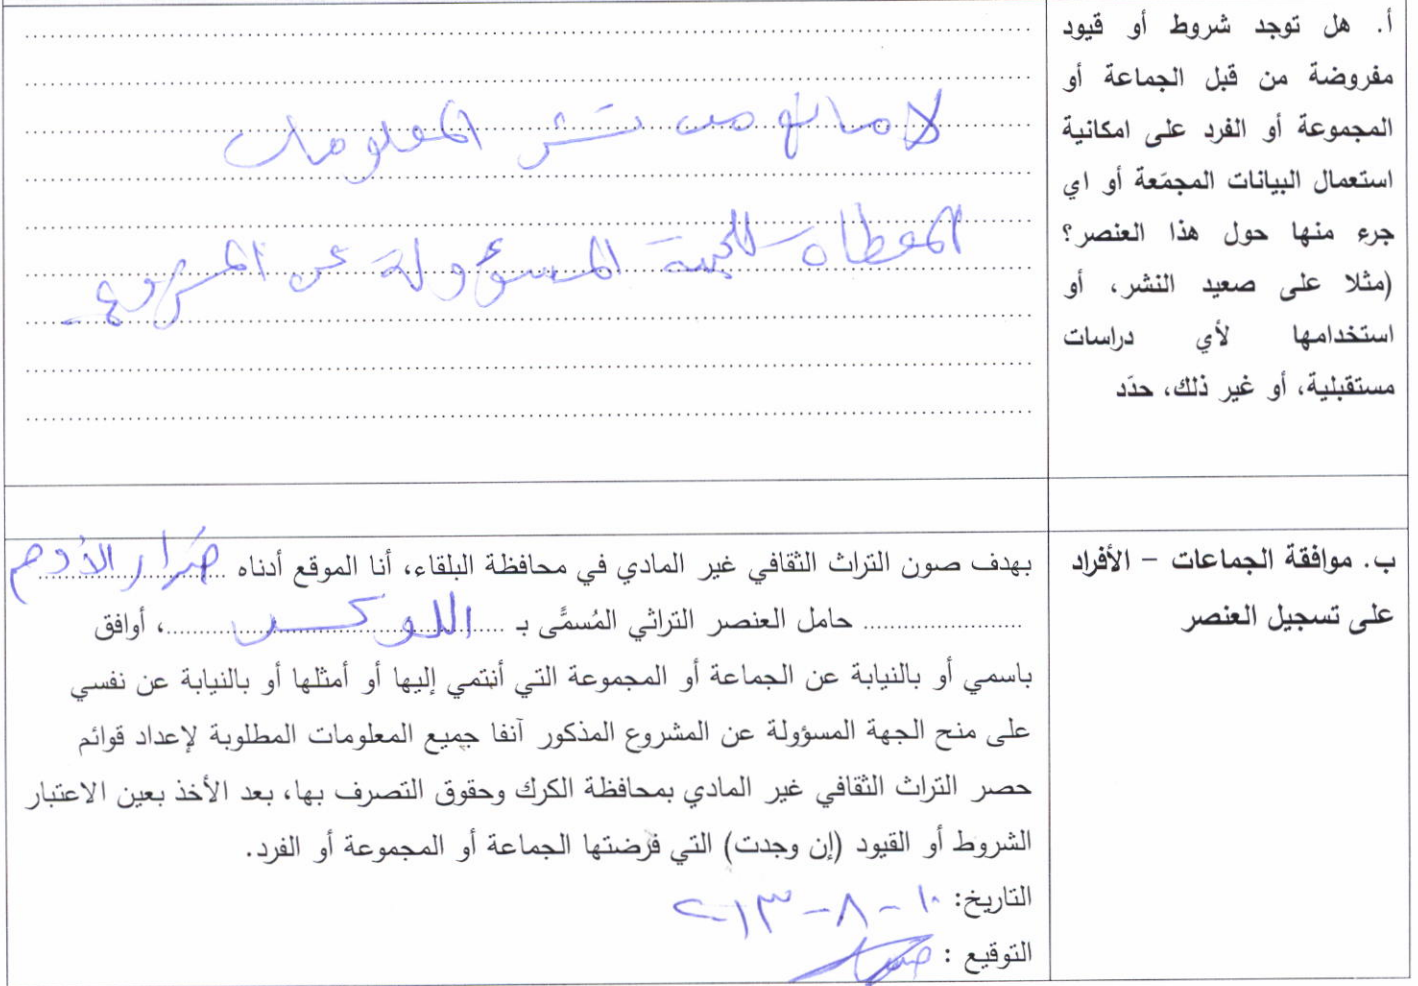 أ. هل توجد شروط أو قيود
مفروضة من قبل الجماعة أو
المجموعة أو الفرد على امكانية
استعمال البيانات المجمَعة أو اي
جرء منها حول هذا العنصر؟
(مثلا على صعيد النشر، أو
استخدامها لأي دراسات
مستقبلية، أو غير ذلك، حدَد
لا مانع من نشر المعلومات
المعطاه للجهة المسؤولة عن المشروع.
ب. موافقة الجماعات - الأفراد
على تسجيل العنصر
بهدف صون التراث الثقافي غير المادي في محافظة البلقاء، أنا الموقع أدناه ضرار الأدهم
حامل العنصر التراثي المُسمَّى بـ ، أوافق
باسمي أو بالنيابة عن الجماعة أو المجموعة التي أنتمي إليها أو أمثلها أو بالنيابة عن نفسي
على منح الجهة المسؤولة عن المشروع المذكور آنفا جميع المعلومات المطلوبة لإعداد قوائم
حصر التراث الثقافي غير المادي بمحافظة الكرك وحقوق التصرف بها، بعد الأخذ بعين الاعتبار
الشروط أو القيود (إن وجدت) التي فرضتها الجماعة أو المجموعة أو الفرد.
التاريخ: ١٠-٨-٢٠١٣
التوقيع : ضرار